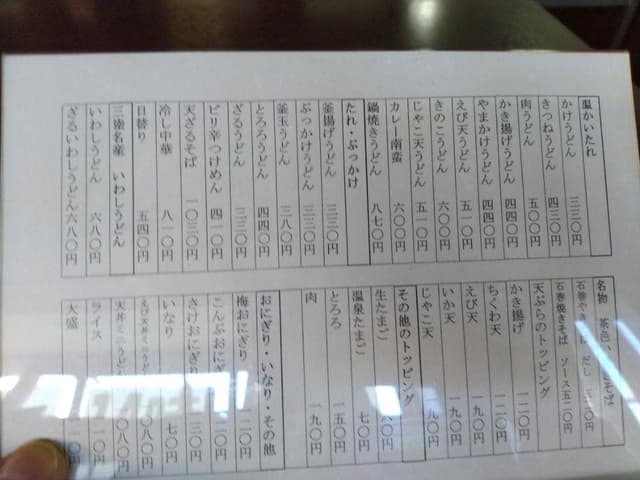 温かいたれ
かけうどん 三三〇円
きつねうどん 四三〇円
肉うどん 五〇〇円
かき揚げうどん 四四〇円
やまかけうどん 四四〇円
えび天うどん 五一〇円
きのこうどん 六〇〇円
じゃこ天うどん 五一〇円
カレー南蛮 六〇〇円
鍋焼きうどん 八七〇円
たれ・ぶっかけ
釜揚げうどん 三三〇円
ぶっかけうどん 三三〇円
釜玉うどん 三八〇円
とろろうどん 四四〇円
ざるうどん 三三〇円
ピリ辛つけめん 四一〇円
天ざるそば 一〇三〇円
冷し中華 八一〇円
日替り 五四〇円
三陸名産 いわしうどん
いわしうどん 六八〇円
ざるいわしうどん 六八〇円
名物 茶色い
石巻やき
石巻焼きそば ソース 五二〇円
天ぷらのトッピング
かき揚げ 一二〇円
ちくわ天 一二〇円
えび天 一九〇円
いか天 一九〇円
じゃこ天 一九〇円
その他のトッピング
生たまご
温泉たまご 七〇円
とろろ 一五〇円
肉 一九〇円
おにぎり・いなり・その他
梅おにぎり 一二〇円
こんぶおにぎり 一二〇円
さけおにぎり 一三〇円
いなり 七〇円
えび天丼ミニうどん 〇八〇円
天丼ミニうどん 〇八〇円
ライス 一一〇円
大盛 一一〇円